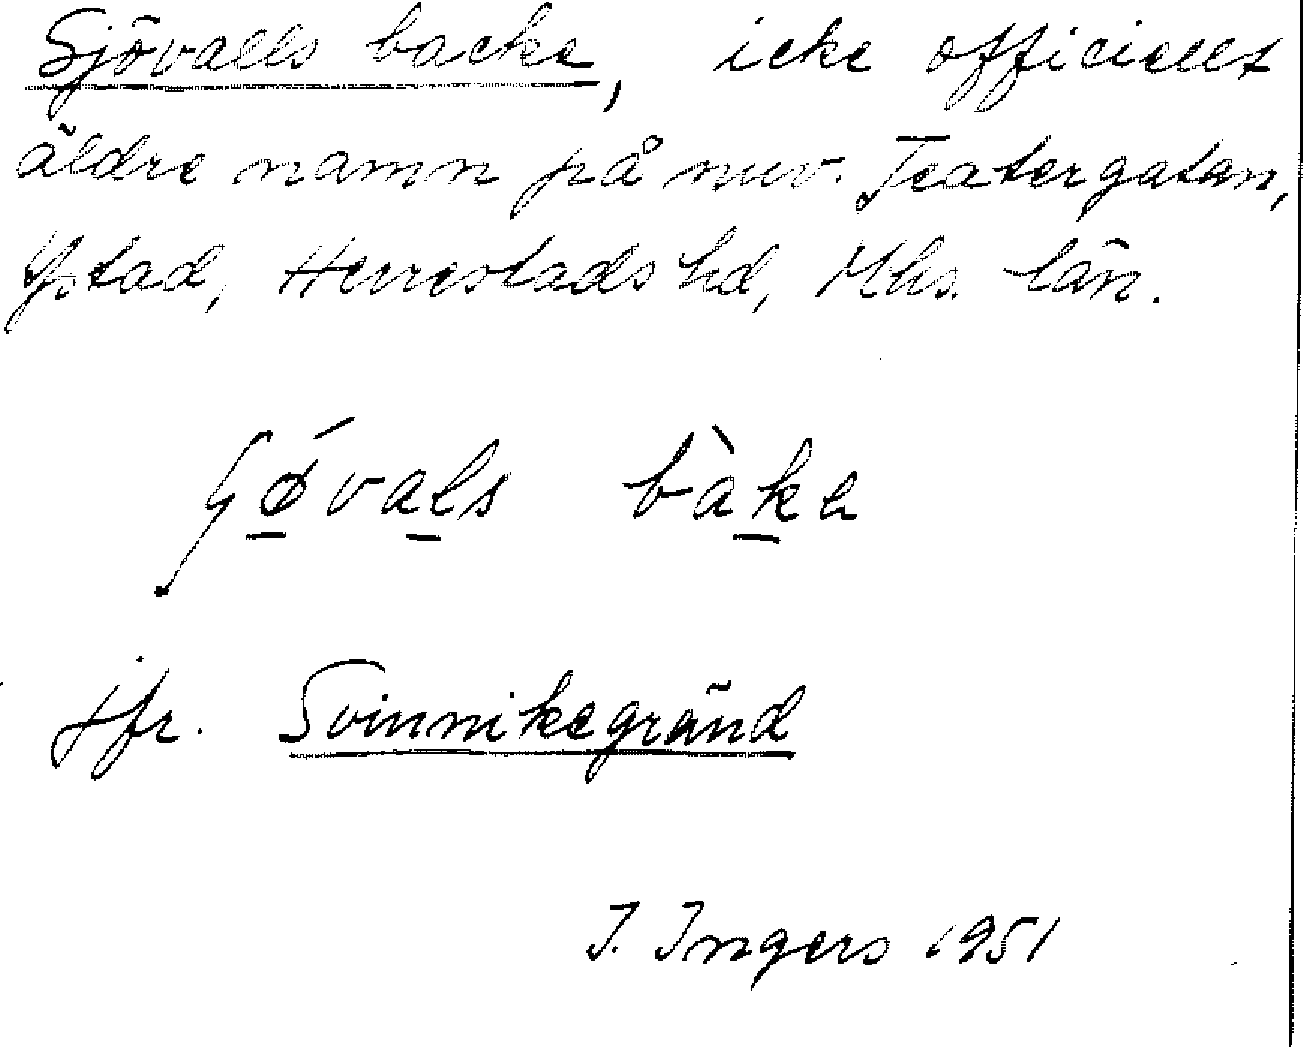 Sjövalls backe, icke officiellt
äldre namn på nuv. Teatergatan,
Ystad, Herrestads hd, Mhs. län.
bàka
Jfr. Svinnikegränd
I. Ingers 1951